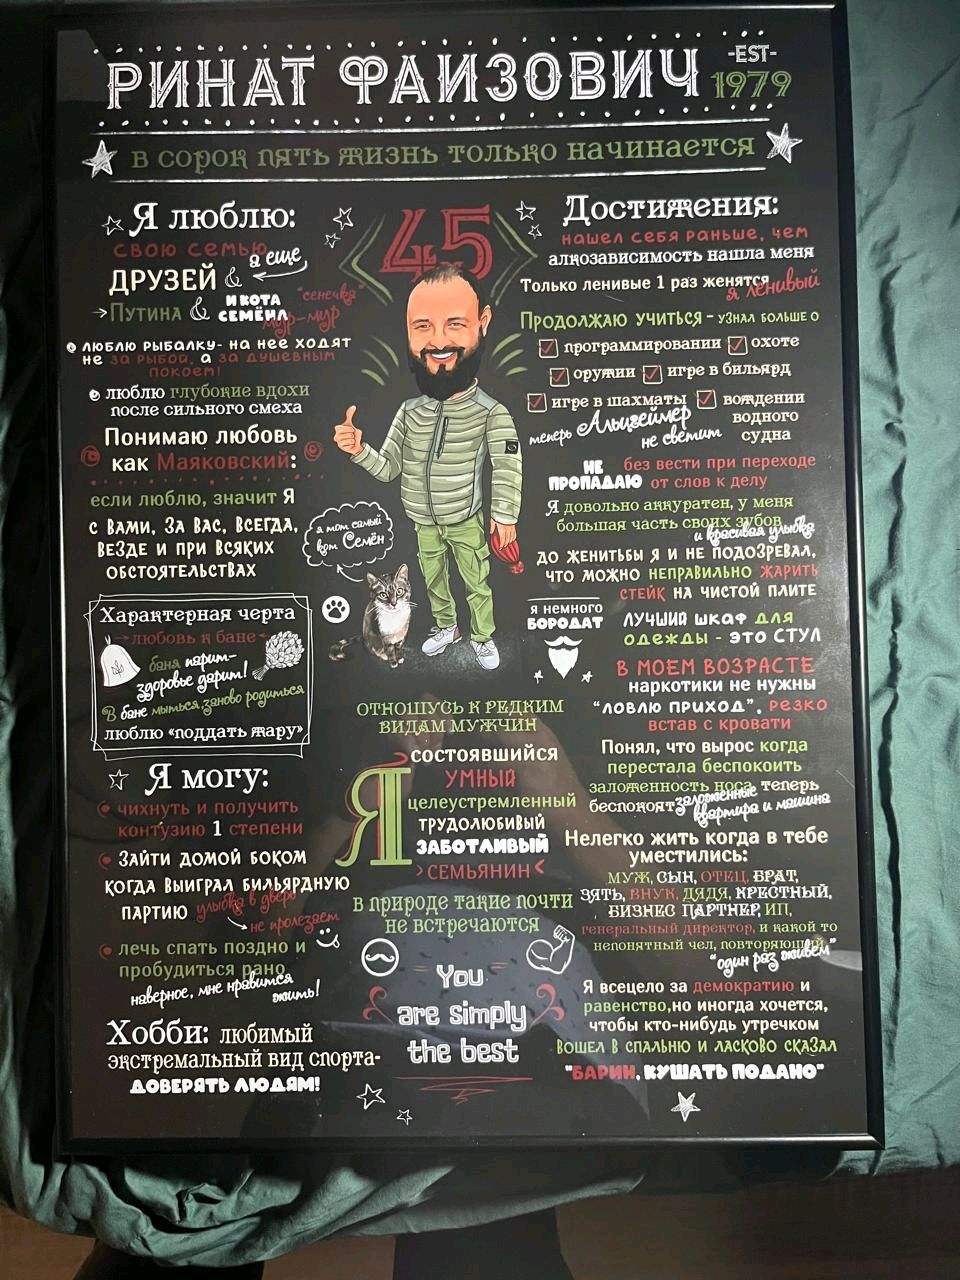 РИНАТ ФАИЗОВИЧ
-EST-
1979
в сорок пять жизнь только начинается
Я люблю:
свою семью
а еще
ДРУЗЕЙ &
Путина & И КОТА
СЕМЁНА
"сенечка"
мур-мур
люблю рыбалку- на нее ходят
не за рыбой, а за душевным
покоем!
люблю глубокие вдохи
после сильного смеха
Понимаю любовь
как Маяковский:
если люблю, значит Я
с Вами, За Вас, Всегда,
Везде и при всяких
обстоятельствах
Характерная черта
любовь к бане
баня парит-
здоровье дарит!
В бане мыться, заново родиться
люблю «поддать жару»
Я могу:
чихнуть и получить
контузию 1 степени
Зайти домой боком
когда выиграл бильярдную
партию
улыбка в дверь
не пролезает
лечь спать поздно и
пробудиться рано
наверное, мне нравится
жить!
Хобби: любимый
экстремальный вид спорта-
ДОВЕРЯТЬ ЛЮДЯМ!
45
я тот самый
кот Семён
я немного
БОРОДАТ
ОТНОШУСЬ К РЕДКИМ
ВИДАМ МУЖЧИН
Я
состоявшийся
УМНЫЙ
целеустремленный
ТРУДОЛЮБИВЫЙ
ЗАБОТЛИВЫЙ
СЕМЬЯНИН
в природе такие почти
не встречаются
You
are simply
the best
Достижения:
нашел себя раньше, чем
алкозависимость нашла меня
Только ленивые 1 раз женятся
я ленивый
Продолжаю учиться - узнал больше о
программировании охоте
оружии игре в бильярд
игре в шахматы вождении
водного
судна
теперь Альцгеймер
не светит
НЕ
ПРОПАДАЮ
без вести при переходе
от слов к делу
Я довольно аккуратен, у меня
большая часть своих зубов
и красивая улыбка
до женитьбы я и не подозревал,
что можно неправильно жарить
стейк на чистой плите
ЛУЧШИЙ ШКАФ ДЛЯ
ОДЕЖДЫ - ЭТО СТУЛ
В МОЕМ ВОЗРАСТЕ
наркотики не нужны
"ловлю приход", резко
встав с кровати
Понял, что вырос когда
перестала беспокоить
заложенность носа, теперь
беспокоят заложенные
квартира и машина
Нелегко жить когда в тебе
уместились:
МУЖ, СЫН, ОТЕЦ, БРАТ,
ЗЯТЬ, ВНУК, ДЯДЯ, КРЕСТНЫЙ,
БИЗНЕС ПАРТНЕР, ИП,
генеральный директор, и какой то
непонятный чел, повторяющий,
"один раз живем"
Я всецело за демократию и
равенство,но иногда хочется,
чтобы кто-нибудь утречком
вошел в спальню и ласково сказал
"БАРИН, КУШАТЬ ПОДАНО"